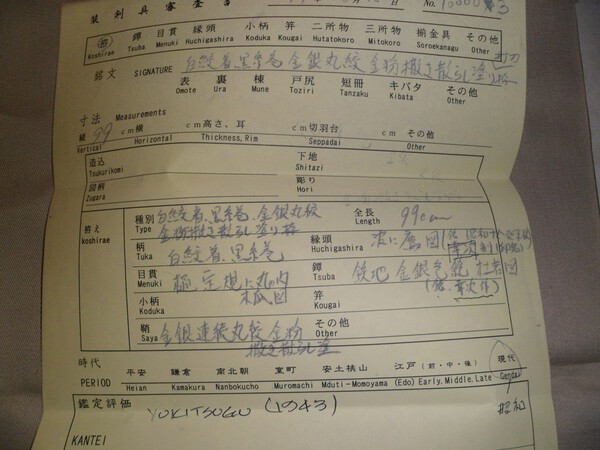 装剣具審査書
No. 10000
拵 鐔 目貫 縁頭 小柄 笄 二所物 三所物 揃金具 その他
Koshirae Tsuba Menuki Huchigashira Koduka Kougai Hutatokoro Mitokoro Soroekanagu Other
銘文 SIGNATURE 白鮫着黒糸巻金銀丸紋金粉撒き散らし塗り
表 裏 棟 戸尻 短冊 キバタ その他
Omote Ura Mune Toziri Tanzaku Kibata Other
寸法 Measurements
縦 99 cm 横 cm 高さ、耳 cm 切羽台 cm その他
Vertical Horizontal Thickness, Rim Seppadai Other
造込 下地
Tsukurikomi Shitazi
図柄 彫り
Zugara Hori
拵え
koshirae
種別 白鮫着、黒糸巻、金銀丸紋 全長 99cm
Type 金粉撒き散らし塗り Length
柄 白鮫着、黒糸巻 縁頭 波に 図
Tuka Huchigashira
目貫 丸の内 鐔 鉄地 金銀色 図
Menuki 木瓜図 Tsuba
小柄 笄
Koduka Kougai
鞘 金銀連続丸紋金粉 その他
Saya 撒き散らし塗 Other
時代 平安 鎌倉 南北朝 室町 安土桃山 江戸(前・中・後) 現代
PERIOD Heian Kamakura Nanbokucho Muromachi Mduti-Momoyama (Edo) Early. Middle. Late Gendai
鑑定評価 YUKITSUGU (1943) 昭和
KANTEI